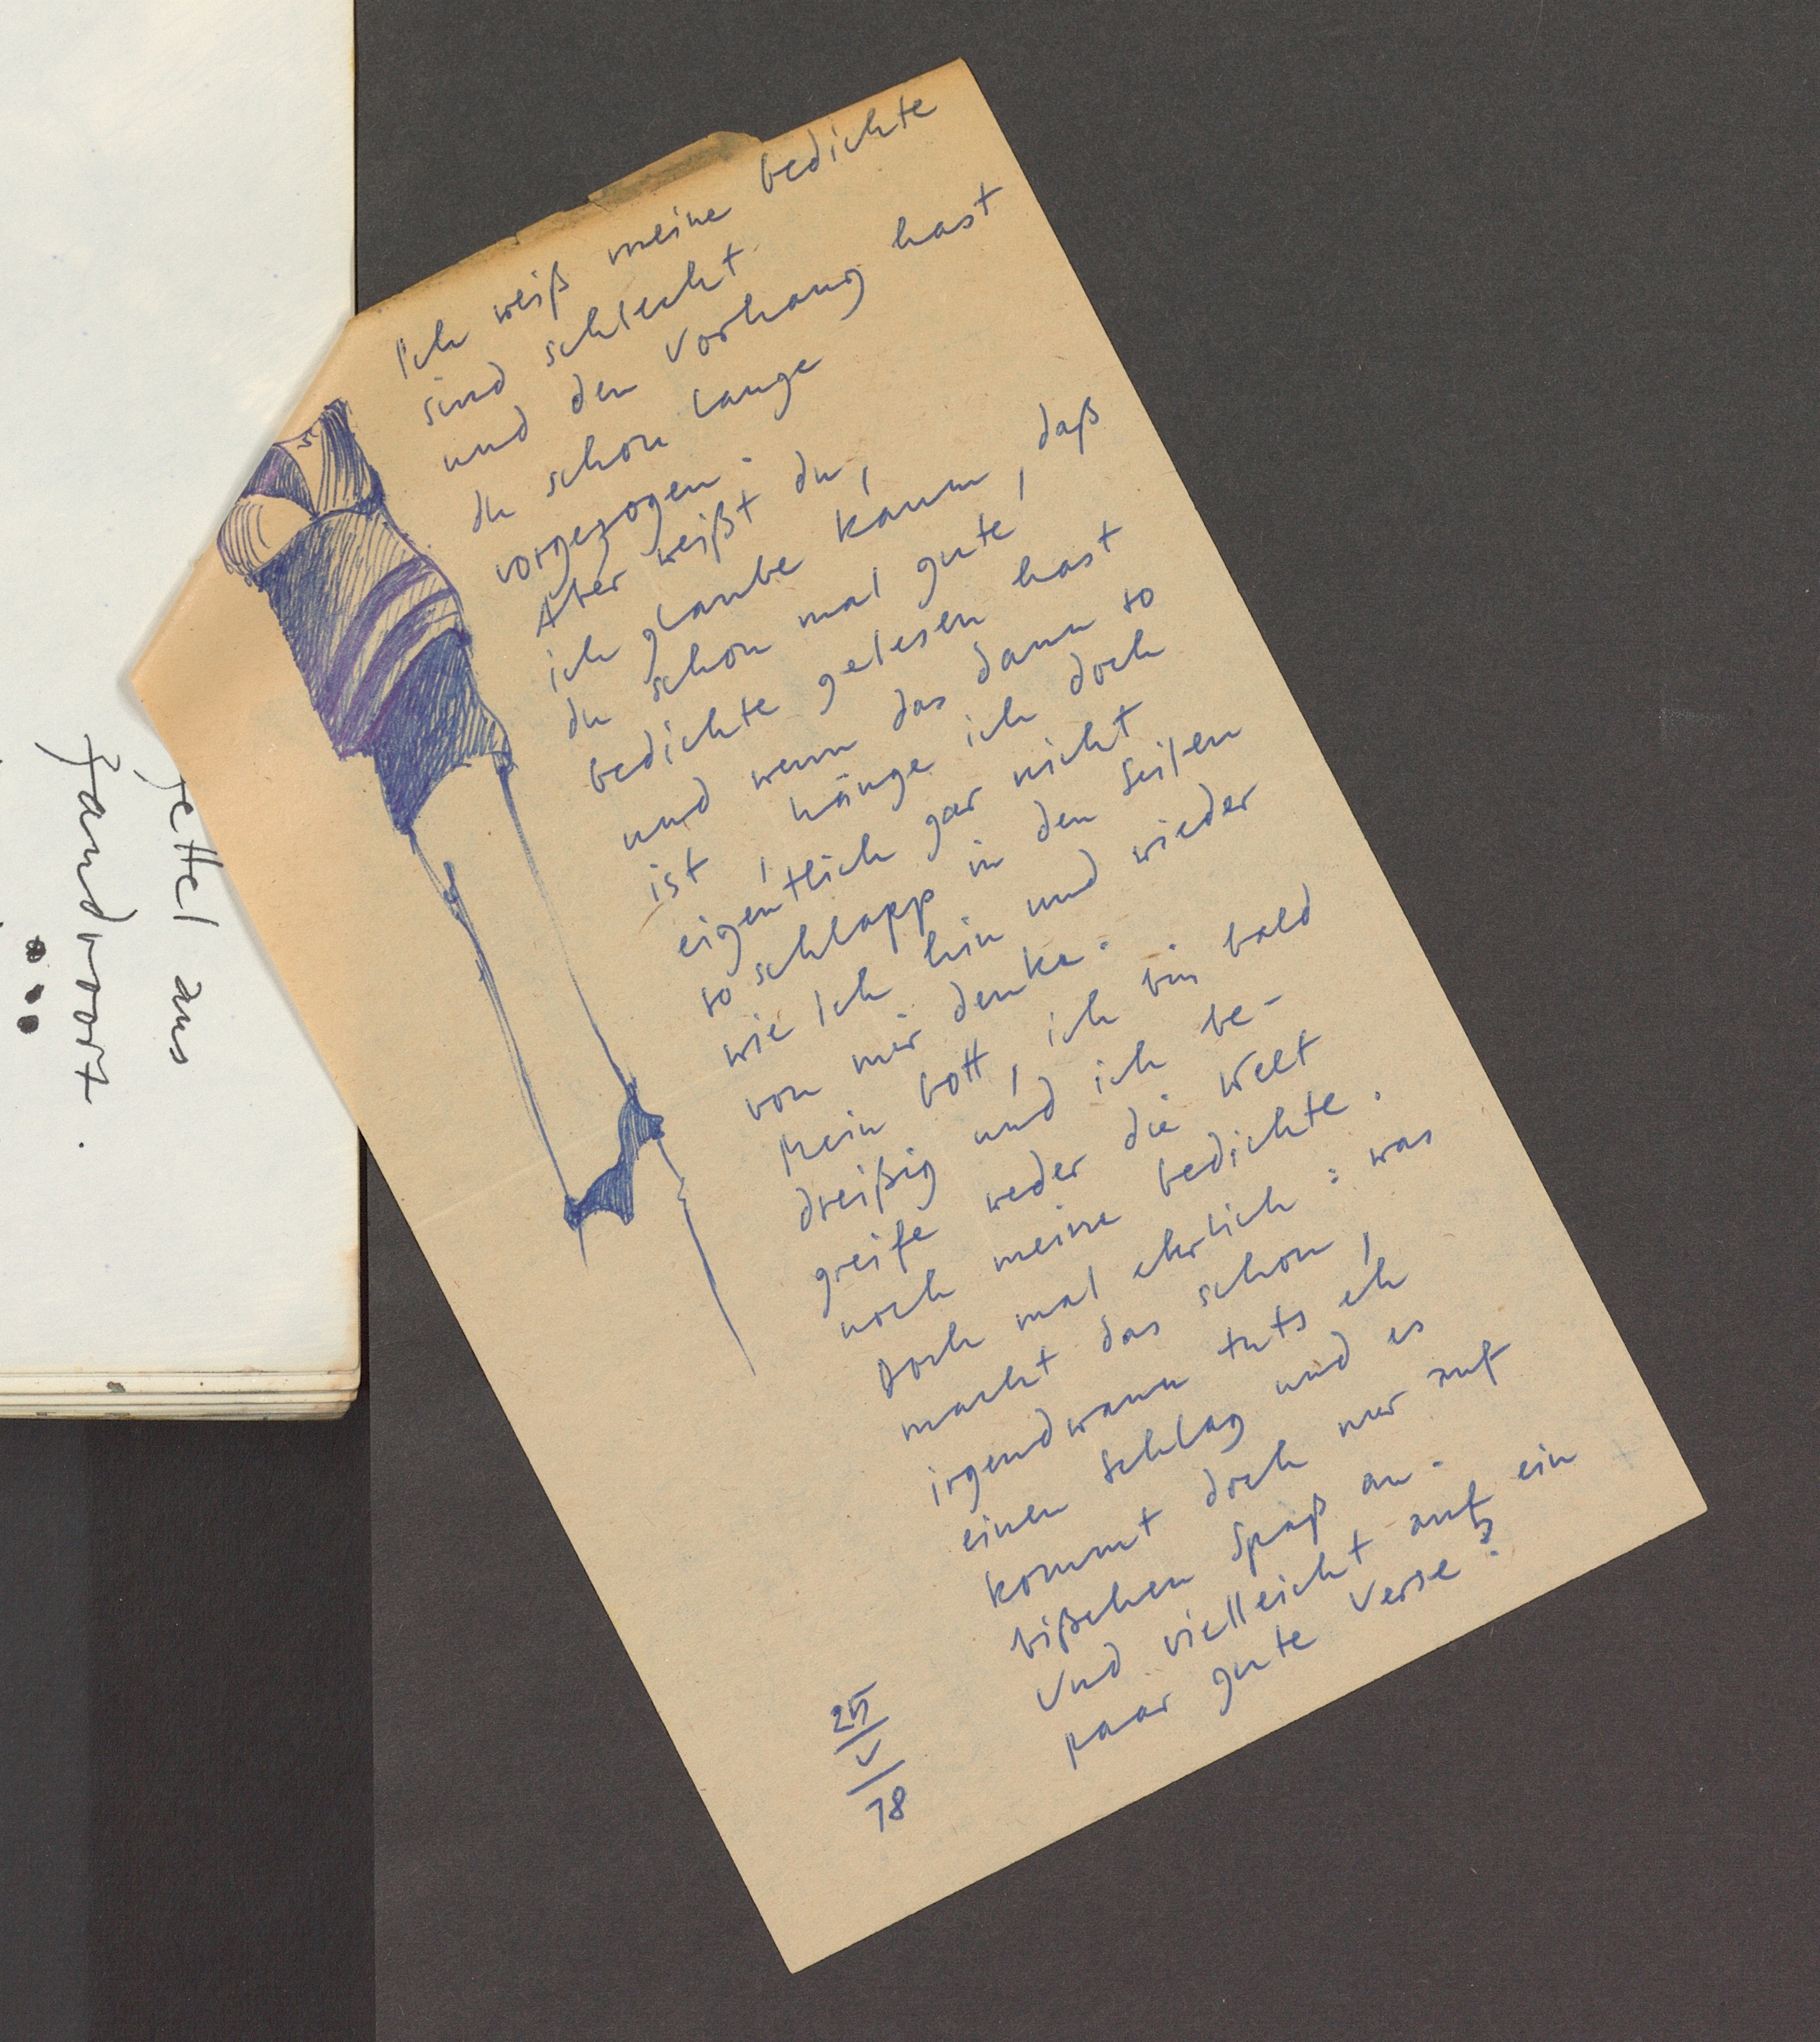 Ich weiß meine Gedichte
sind schlecht
und den Vorhang hast
du schon lange
vorgezogen.
Aber weißt du,
ich glaube kaum, daß
du schon mal gute,
Gedichte gelesen hast
und wenn das dann so
ist, hänge ich doch
eigentlich gar nicht
so schlapp in den Seilen
wie ich hin und wieder
von mir denke.
Mein Gott, ich bin bald
dreißig und ich be-
greife weder die Welt
noch meine Gedichte.
Doch mal ehrlich: was
macht das schon,
irgendwann tuts eh
einen Schlag und es
kommt doch nur auf
bißchen Spaß an.
Und vielleicht auf ein
paar gute Verse?
25
V
78
ettel aus
Zandvoort.